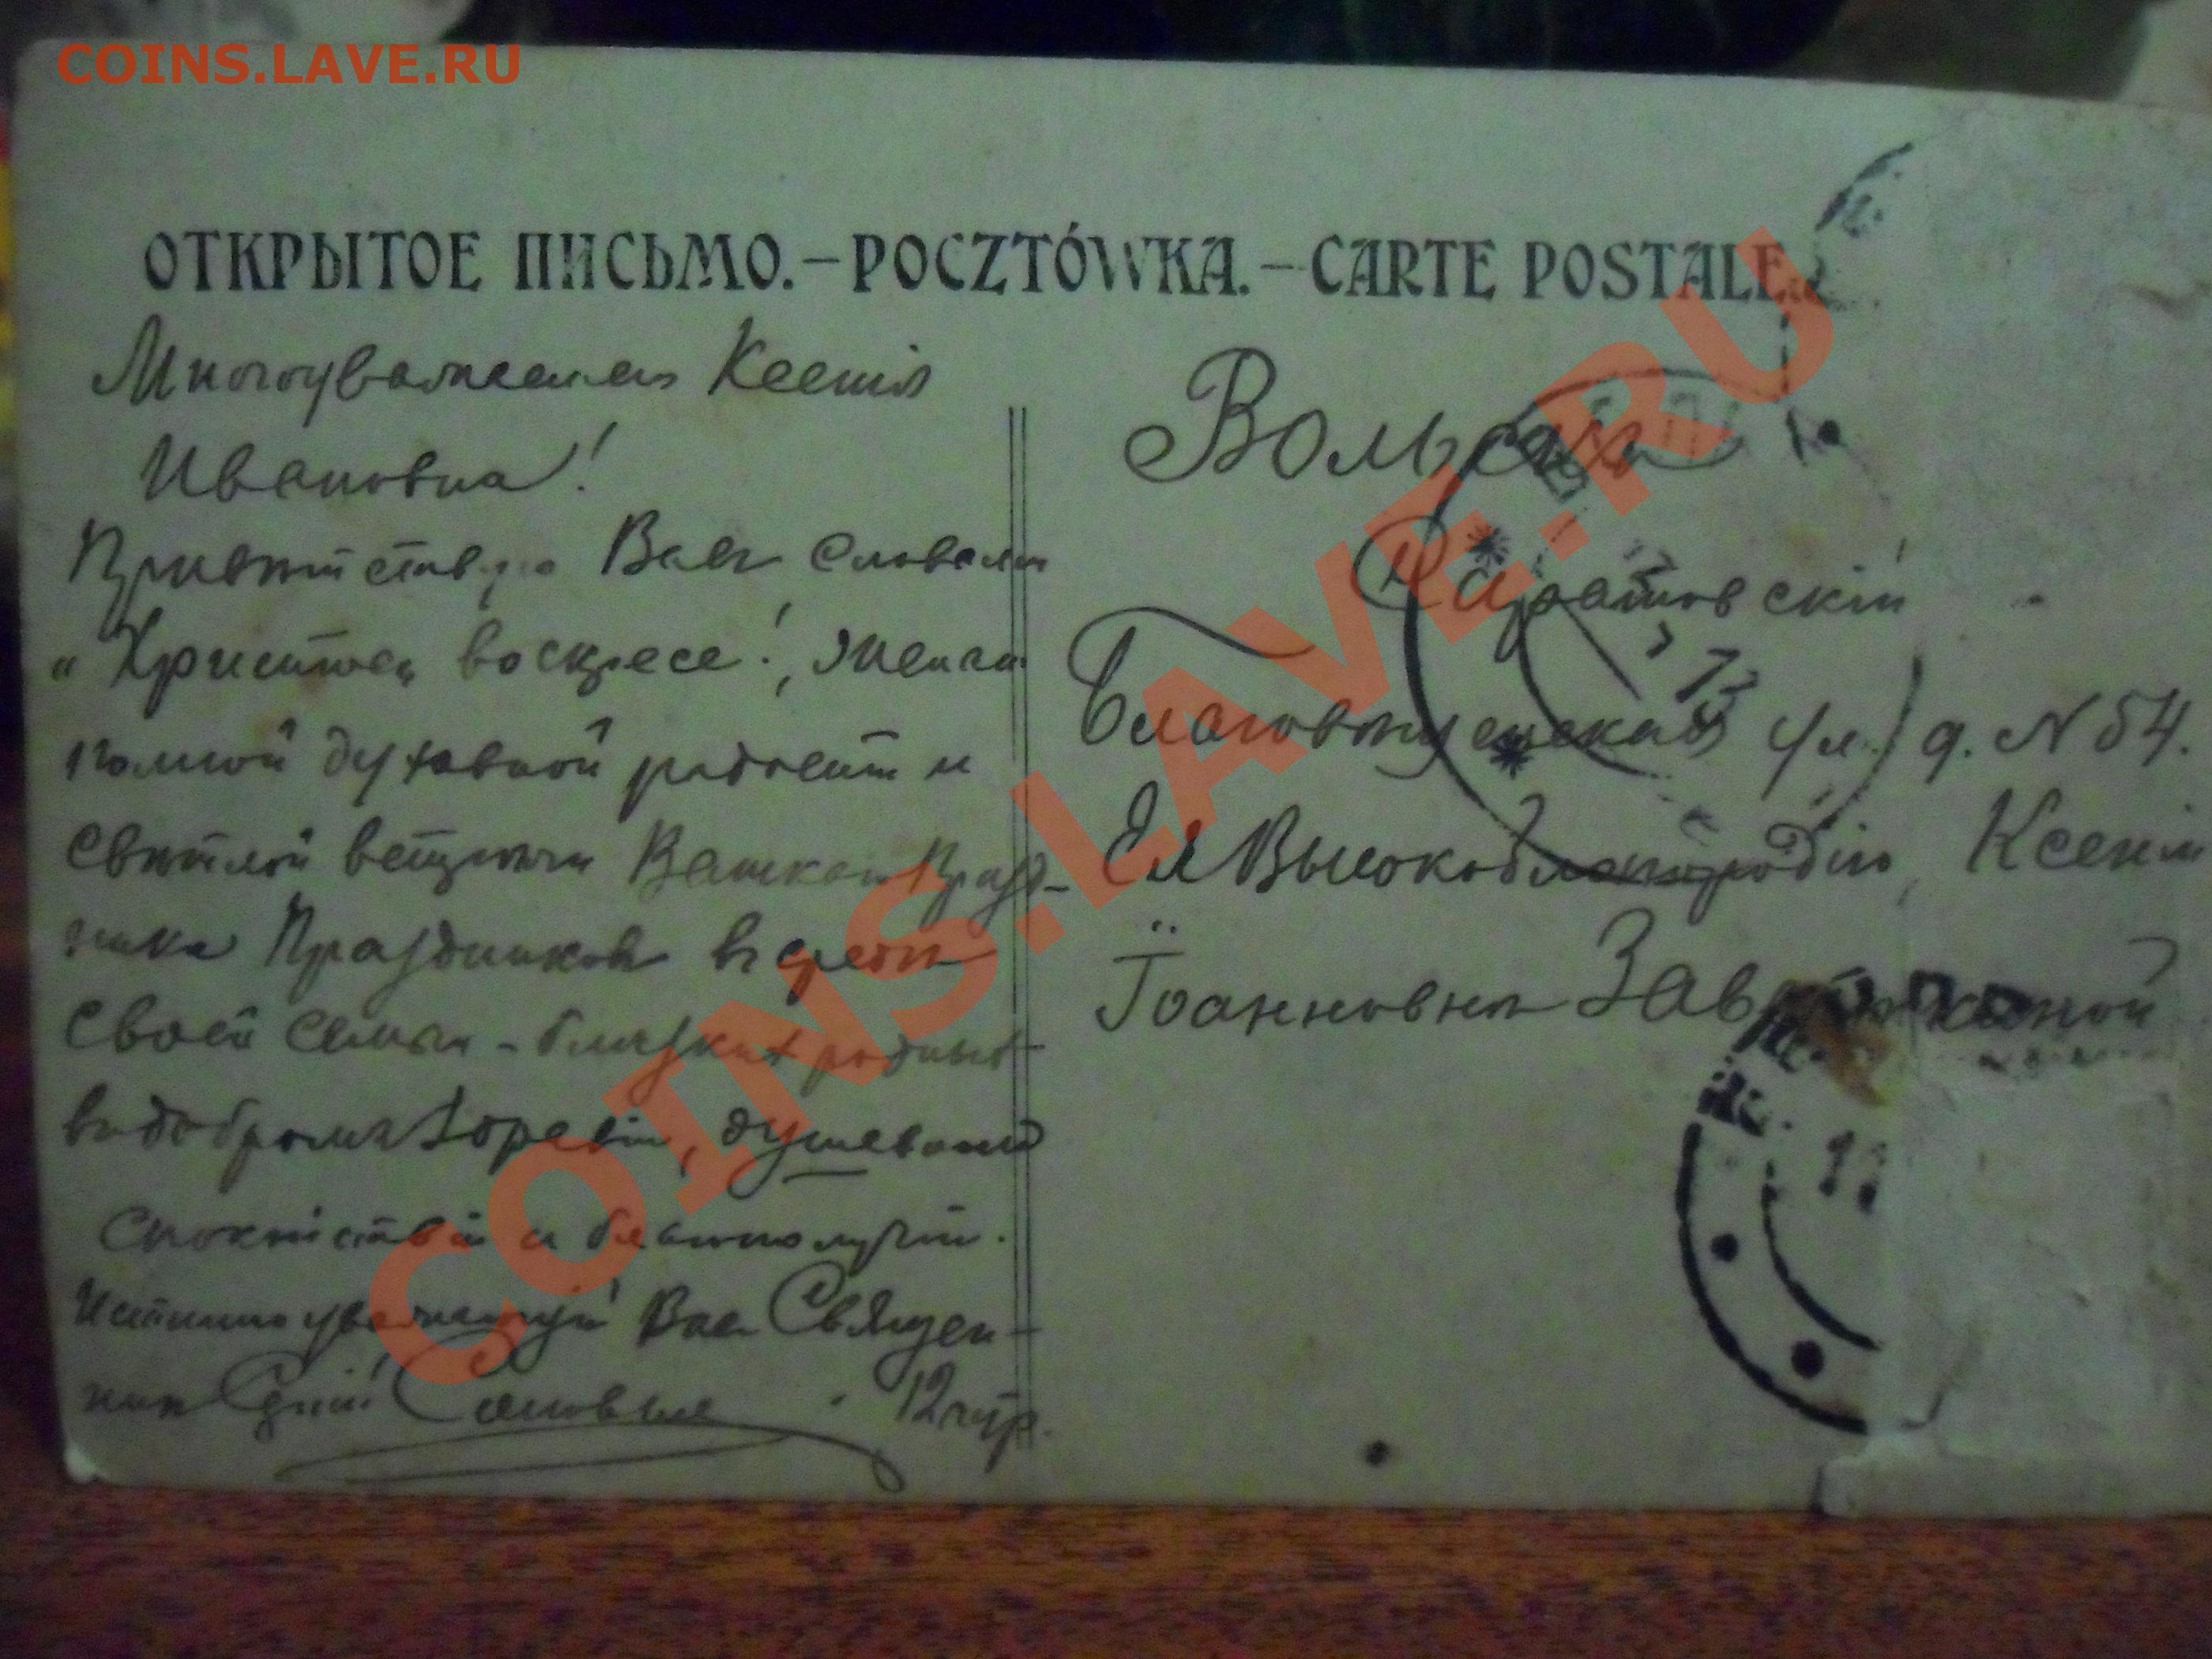 COINS.LAVE.RU
ОТКРЫТОЕ ПИСЬМО.—POCZTÓWKA.—CARTE POSTALE.
Многоуважаемая Ксенія
Ивановна!
Привѣтствую Васъ словами
„Христосъ воскресе!, желаю
полной духовной радости и
свѣтлой встрѣчи
Праздниковъ въ средѣ
своей семьи - близкихъ родныхъ
въ добромъ здоровіи, душевномъ
спокойствіи и благополучіи.
Истинно уважающій Васъ Священ-
никъ
12
Вольскъ
Саратовскій
Благовѣщенская ул. д. N 54.
Ея Высокоблагородію Ксеніи
Іоанновнѣ
COINS.LAVE.RU